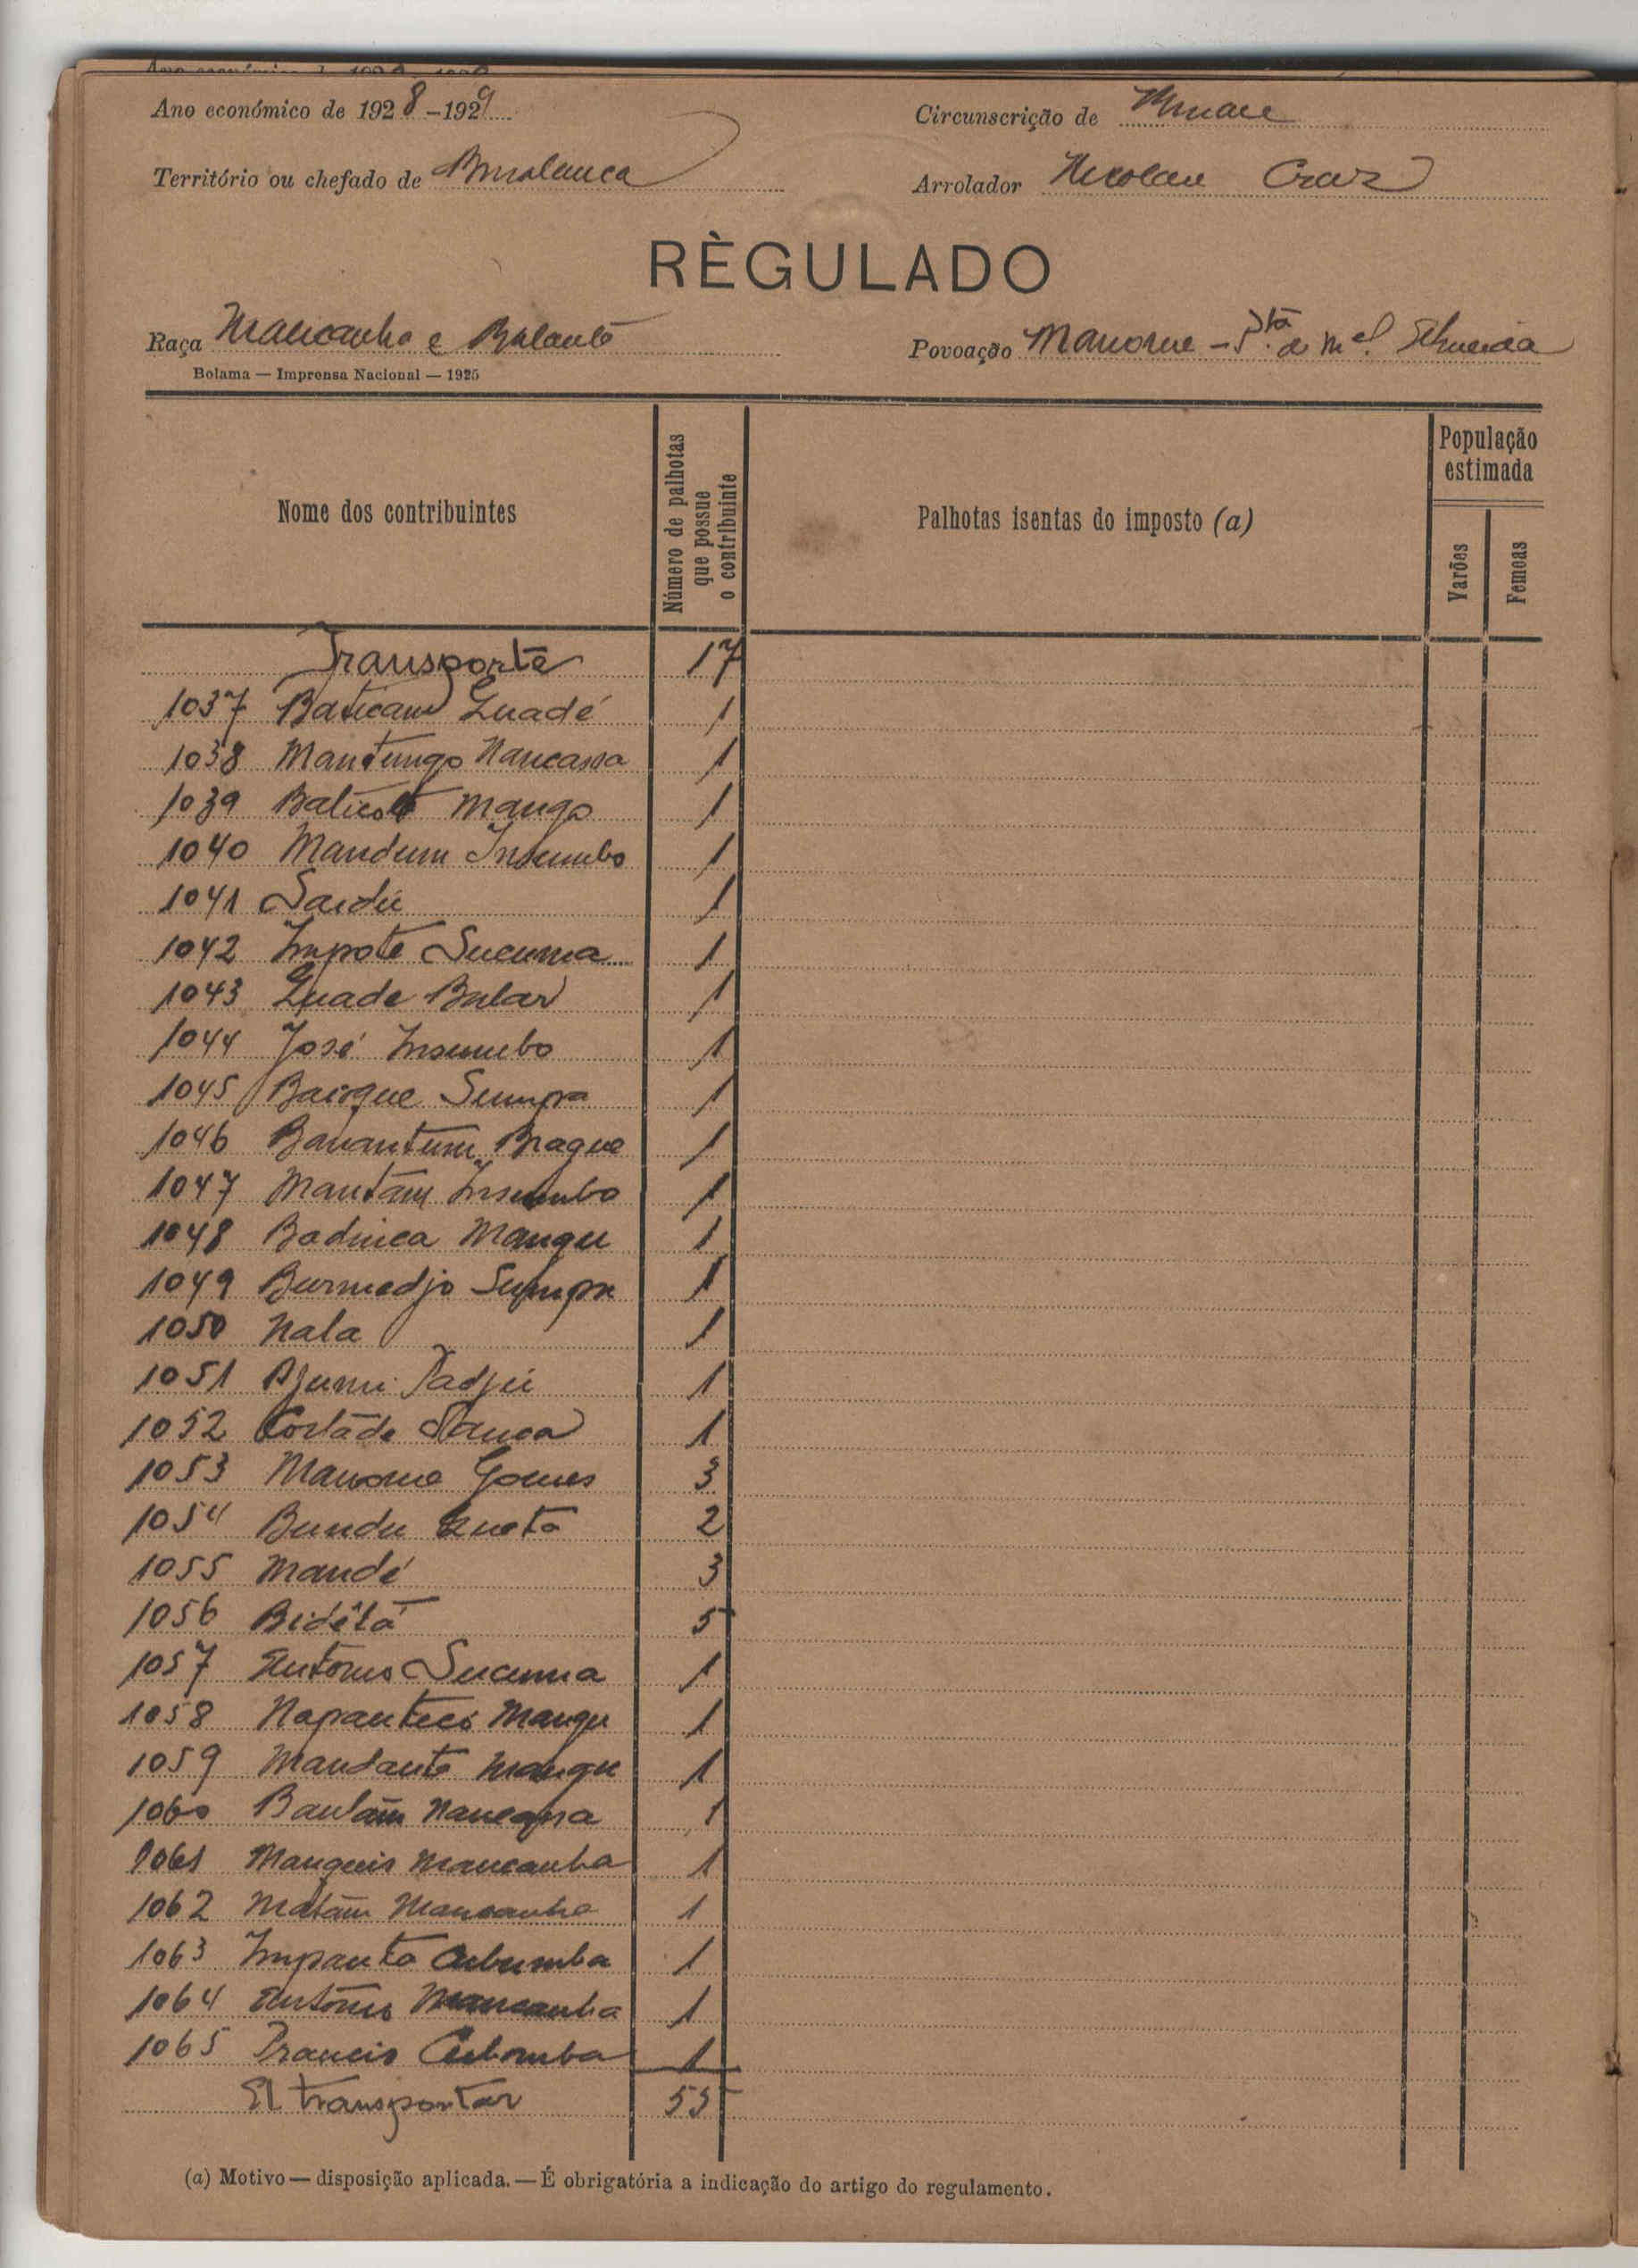 Ano económico de 1928-1929
Circunscrição de
Território ou chefado de
Arrolador Nicolau Cruz
RÈGULADO
Raça Mancanha e Balanta
Povoação
Bolama — Imprensa Nacional — 1925
Nome dos contribuintes
Número de palhotas que possue o contribuinte
Palhotas isentas do imposto (a)
População estimada
Varões
Femeas
Transporte 17
1037 Baticam Quadé 1
1038 Mantungo Nancassa 1
1039 Mango 1
1040 Mandum Insumbo 1
1041 Saidú 1
1042 Impote Sucuma 1
1043 Quade Bular 1
1044 José Insumbo 1
1045 Bacique Sumpra 1
1046 Banantum Braque 1
1047 Mantam Insumbo 1
1048 Badinca Mangu 1
1049 Burmedjo 1
1050 Nala 1
1051 1
1052 Sanca 1
1053 Gomes 3
1054 Bundu 2
1055 Mandé 3
1056 Bidêtá 5
1057 António Sucuma 1
1058 Mangu 1
1059 Mandante Mangu 1
1060 Banlam Nancassa 1
1061 Manguis Mancanha 1
1062 Matam Mancanha 1
1063 Impanta Cubumba 1
1064 António Mancanha 1
1065 Francis Cubomba 1
A transportar 55
(a) Motivo — disposição aplicada. — É obrigatória a indicação do artigo do regulamento.